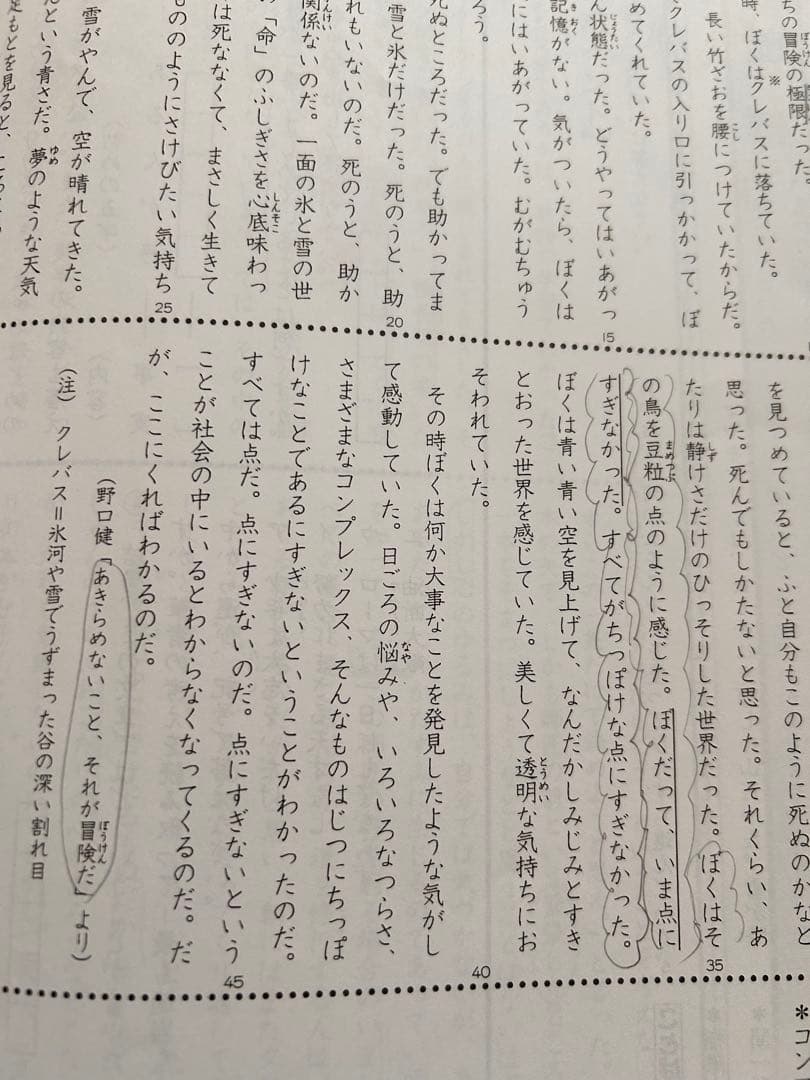 ちの冒険の極限だった。
時、ぼくはクレバス※に落ちていた。
長い竹ざおを腰につけていたからだ。
クレバスの入り口に引っかかって、ぼ
めてくれていた。
ん状態だった。どうやってはいあがっ
記憶がない。気がついたら、ぼくは
にはいあがっていた。むがむちゅう
ろう。
死ぬところだった。でも助かってま
雪と氷だけだった。死のうと、助
れもいないのだ。死のうと、助か
関係ないのだ。一面の氷と雪の世
の「命」のふしぎさを心底味わっ
は死ななくて、まさしく生きて
もののようにさけびたい気持ち
雪がやんで、空が晴れてきた。
んという青さだ。夢のような天気
足もとを見ると、
15
20
25
を見つめていると、ふと自分もこのように死ぬのかなと
思った。死んでもしかたないと思った。それくらい、あ
たりは静けさだけのひっそりした世界だった。ぼくはそ
の鳥を豆粒の点のように感じた。ぼくだって、いま点に
すぎなかった。すべてがちっぽけな点にすぎなかった。
ぼくは青い青い空を見上げて、なんだかしみじみとすき
とおった世界を感じていた。美しくて透明な気持ちにお
そわれていた。
その時ぼくは何か大事なことを発見したような気がし
て感動していた。日ごろの悩みや、いろいろなつらさ、
さまざまなコンプレックス、そんなものはじつにちっぽ
けなことであるにすぎないということがわかったのだ。
すべては点だ。点にすぎないのだ。点にすぎないという
ことが社会の中にいるとわからなくなってくるのだ。だ
が、ここにくればわかるのだ。
（野口健「あきらめないこと、それが冒険だ」より）
（注）　クレバス＝氷河や雪でうずまった谷の深い割れ目
35
40
45
＊コン